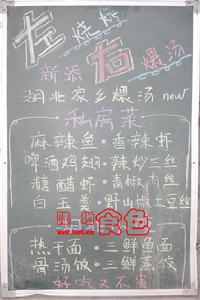 左烧烤
右煨汤
新添
湖北家乡煨汤 new
私房菜
麻辣鱼·香辣虾
啤酒鸡翅·辣炒三丝
糖醋虾·青椒肉丝
白玉羹·野山椒土豆丝
热干面·三鲜鱼面
骨汤饭·三鲜蒸饺
好吃又不贵